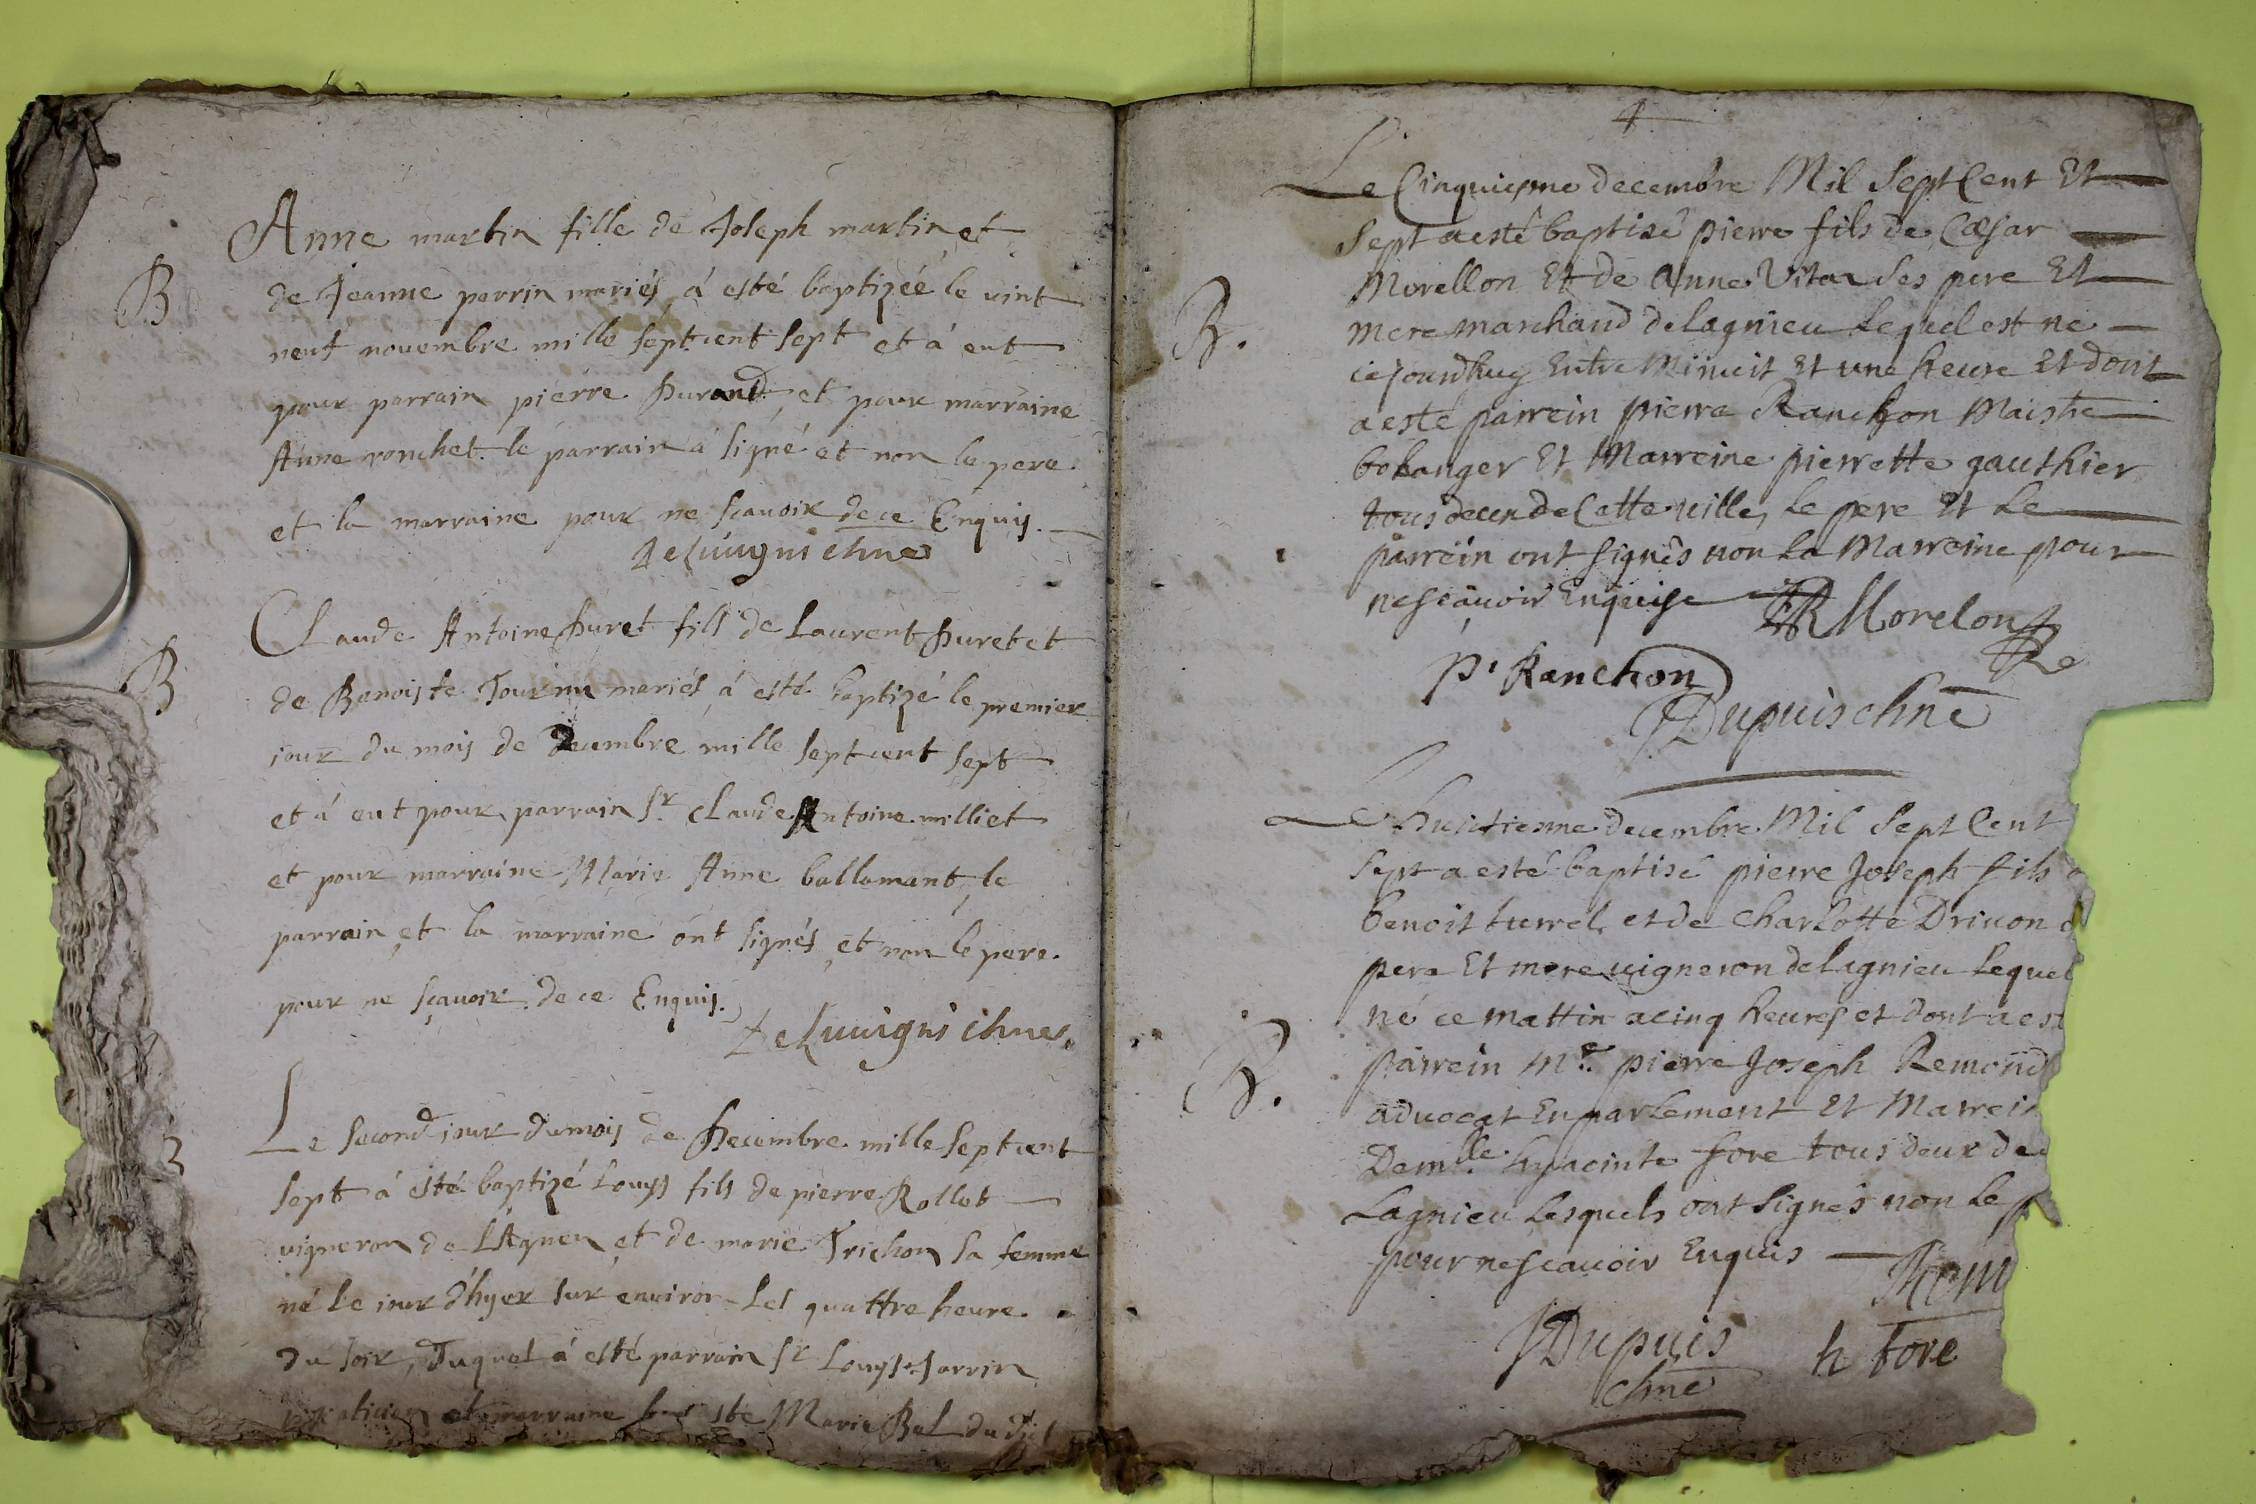 Anne martin fille de Joseph martin et
B
de Jeanne perrin mariés á esté baptizéé le vint
neuf novembre mille septcent sept et á eut
pour parrain pierre Durand, et pour marraine
Anne ronchet. le parrain á signé et non le pere
et la marraine pour ne sçavoir de ce Enquis.
Claude Antoine Duret fils de Laurent Duret et
B
de Benoiste mariés á esté baptizé le premier
jour du mois de decembre mille septcent sept
et á eut pour parrain Sr. Claude Antoine milliet
et pour marraine Marie Anne ballamant, le
parrain et la marraine ont signés, et non le pere.
pour ne sçavoir de ce Enquis.
Le second jour du mois de Decembre mille septcent
sept á esté baptizé Louys fils de pierre Rollet
vigneron de LAgneu et de marie Trichon sa femme
né le jour d'hyer sur environ les quattre heure.
du soir, Duquel á esté parrain Sr Louys Sarrin
et marraine Marie Bal dudit
4
Le Cinquiesme decembre Mil Sept Cent Et
Sept a esté baptisé pierre fils de Cæsar
Morellon Et de Anne Vita Ses pere Et
B.
mere marchand de Lagnieu Lequel est ne
cejourdhuy Entre Minuit Et une heure Et dont
a este parrein pierre Ranchon Maistre
bolanger Et Marreine pierrette gauthier
tous de Cette ville, Le pere Et Le
parrein ont signés non La Marreine pour
ne scavoir Enquise
Morelon
P. Ranchon
Dupuis chne
Le huitiesme decembre Mil Sept Cent
Sept a esté baptisé pierre Joseph fils
benoit turrel et de Charlotte Drivon
pere Et mere vigneron de Lagnieu Lequel
né ce mattin a cinq heures et dont a est
B.
parrein Mre. pierre Joseph Remond
advocat En parlement Et Marrein
Demlle. hyacinte fore tous deux de
Lagnieu Lesquels ont signés non le p
pour ne scavoir Enquis
Rem
Dupuis
h fore
chne